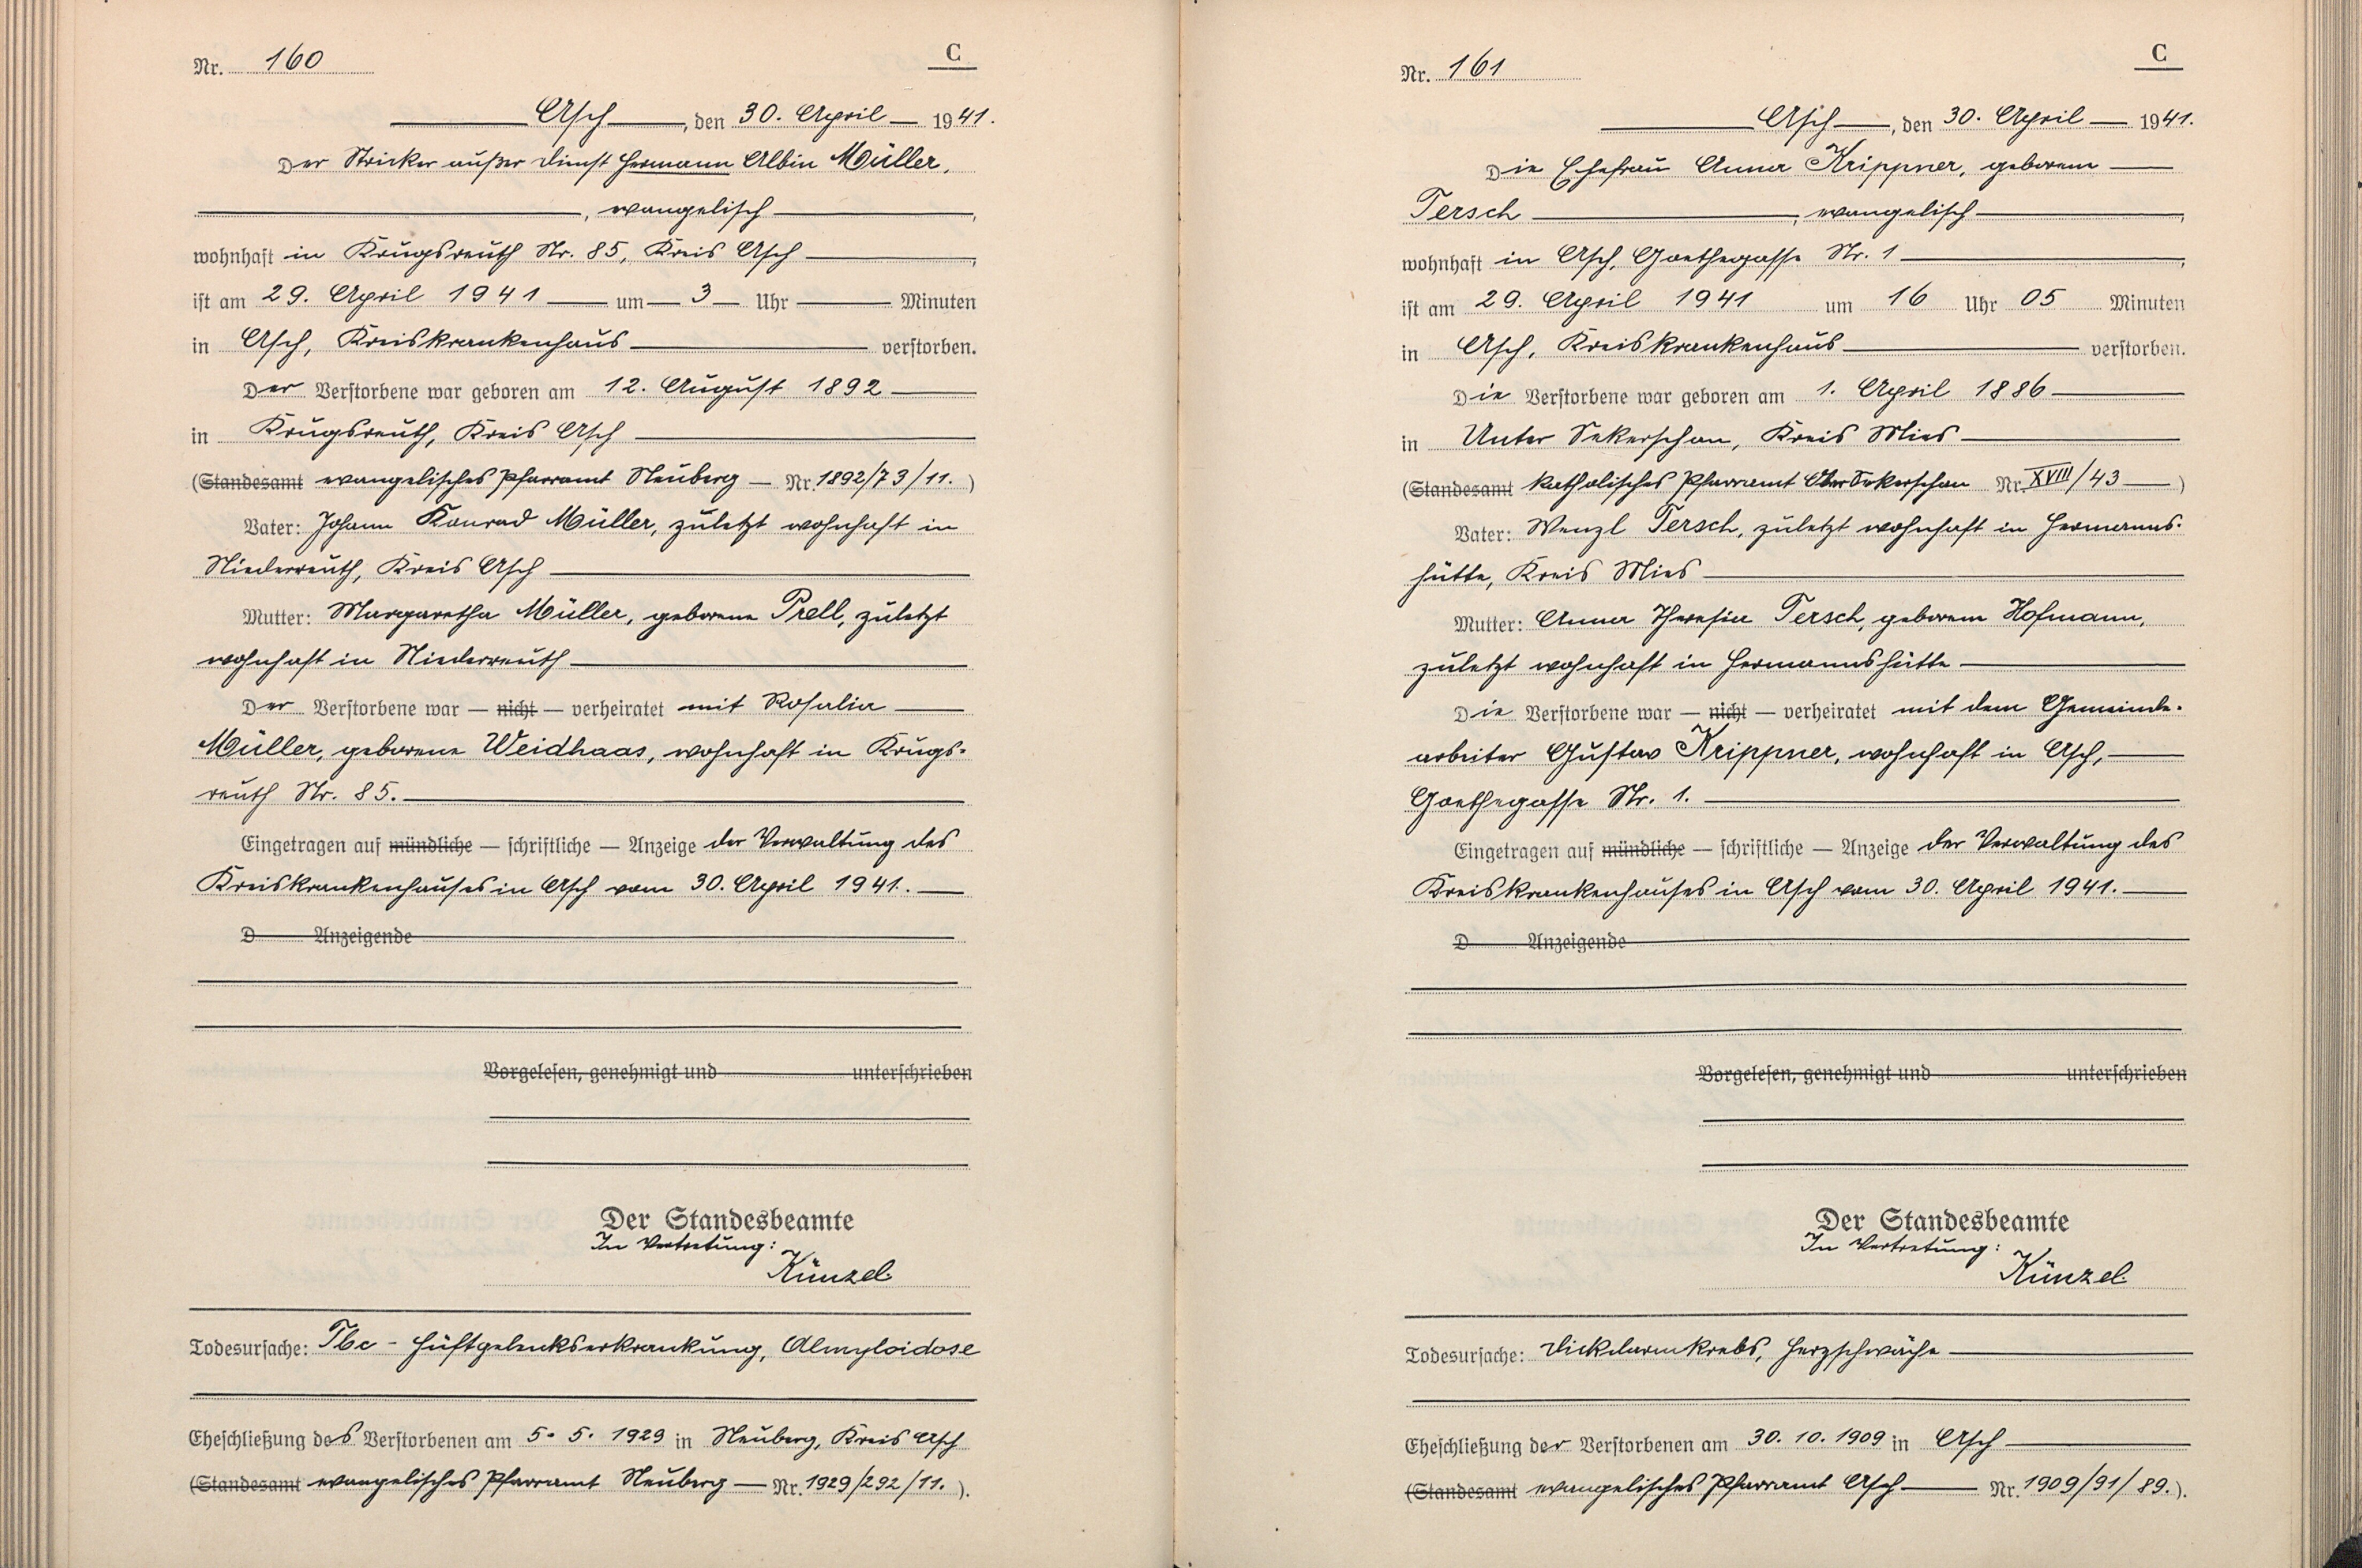 Nr. 160
C
Asch, den 30. April 1941.
Der Stricker außer Dienst Hermann Albin Müller,
, evangelisch,
wohnhaft in Krugsreuth Nr. 85, Kreis Asch,
ist am 29. April 1941 um 3 Uhr Minuten
in Asch, Kreiskrankenhaus verstorben.
Der Verstorbene war geboren am 12. August 1892
in Krugsreuth, Kreis Asch
(Standesamt evangelisches Pfarramt Neuberg — Nr. 1892/73/11.)
Vater: Johann Konrad Müller, zuletzt wohnhaft in
Niederreuth, Kreis Asch
Mutter: Margaretha Müller, geborene Prell, zuletzt
wohnhaft in Niederreuth
Der Verstorbene war — nicht — verheiratet mit Rosalia
Müller, geborene Weidhaas, wohnhaft in Krugs-
reuth Nr. 85.
Eingetragen auf mündliche — schriftliche — Anzeige der Verwaltung des
Kreiskrankenhauses in Asch vom 30. April 1941.
D Anzeigende
Vorgelesen, genehmigt und unterschrieben
Der Standesbeamte
In Vertretung:
Künzel.
Todesursache: Tbc - Hüftgelenkserkrankung, Almyloidose
Eheschließung des Verstorbenen am 5. 5. 1929 in Neuberg, Kreis Asch
(Standesamt evangelisches Pfarramt Neuberg — Nr. 1929/292/11.).
Nr. 161
C
Asch, den 30. April 1941.
Die Ehefrau Anna Krippner, geborene
Tersch, evangelisch,
wohnhaft in Asch, Goethegasse Nr. 1,
ist am 29. April 1941 um 16 Uhr 05 Minuten
in Asch, Kreiskrankenhaus verstorben.
Die Verstorbene war geboren am 1. April 1886
in Unter Sekerschan, Kreis Mies
(Standesamt katholisches Pfarramt Ober Sekerschan Nr. XVIII/43)
Vater: Wenzl Tersch, zuletzt wohnhaft in Hermanns-
hütte, Kreis Mies
Mutter: Anna Theresia Tersch, geborene Hofmann,
zuletzt wohnhaft in Hermannshütte
Die Verstorbene war — nicht — verheiratet mit dem Gemeinde-
arbeiter Gustav Krippner, wohnhaft in Asch,
Goethegasse Nr. 1.
Eingetragen auf mündliche — schriftliche — Anzeige der Verwaltung des
Kreiskrankenhauses in Asch vom 30. April 1941.
D Anzeigende
Vorgelesen, genehmigt und unterschrieben
Der Standesbeamte
In Vertretung:
Künzel.
Todesursache: Dickdarmkrebs, Herzschwäche
Eheschließung der Verstorbenen am 30. 10. 1909 in Asch
(Standesamt evangelisches Pfarramt Asch — Nr. 1909/91/89.).